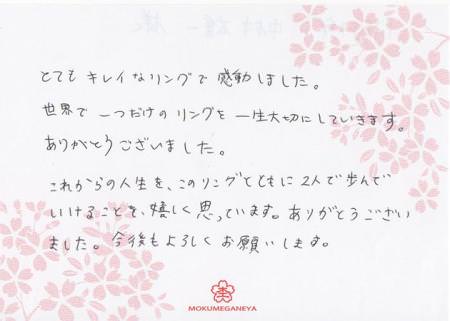 とてもキレイなリングで感動しました。
世界で一つだけのリングを一生大切にしていきます。
ありがとうございました。
これからの人生を、このリングとともに2人で歩んで
いけることを、嬉しく思っています。ありがとうござい
ました。今後もよろしくお願いします。
MOKUMEGANEYA